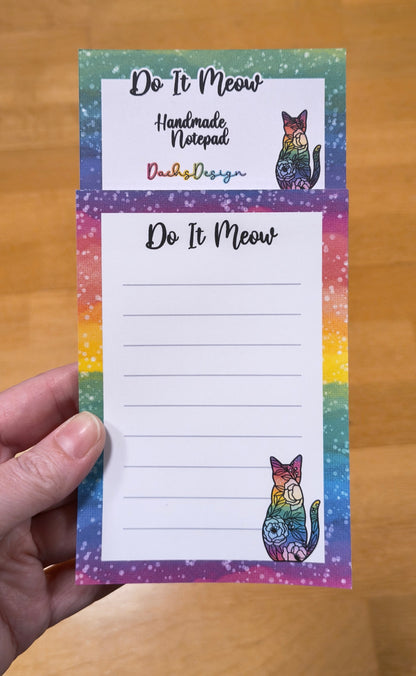 Do It Meow
Handmade
Notepad
DachsDesign
Do It Meow